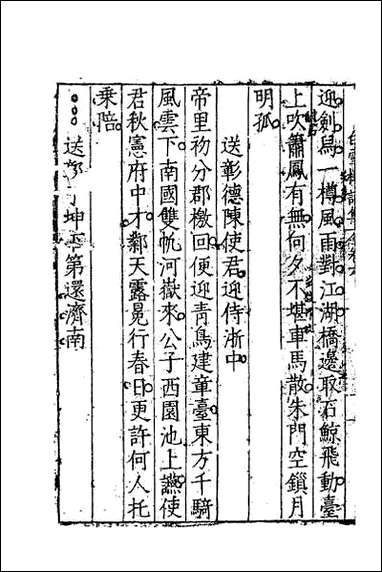 迎劍舄一樽風雨對江湖橋邊取石鯨飛動臺
上吹簫鳳有無何夕不堪車馬散朱門空鎖月
明孤
送彰德陳使君迎侍浙中
帝里初分郡檄回便迎青鳥建章臺東方千騎
風雲下南國雙帆河嶽來公子西園池上讌使
君秋憲府中才鄰天露冕行春日更許何人托
乘陪
送 坤 第還濟南